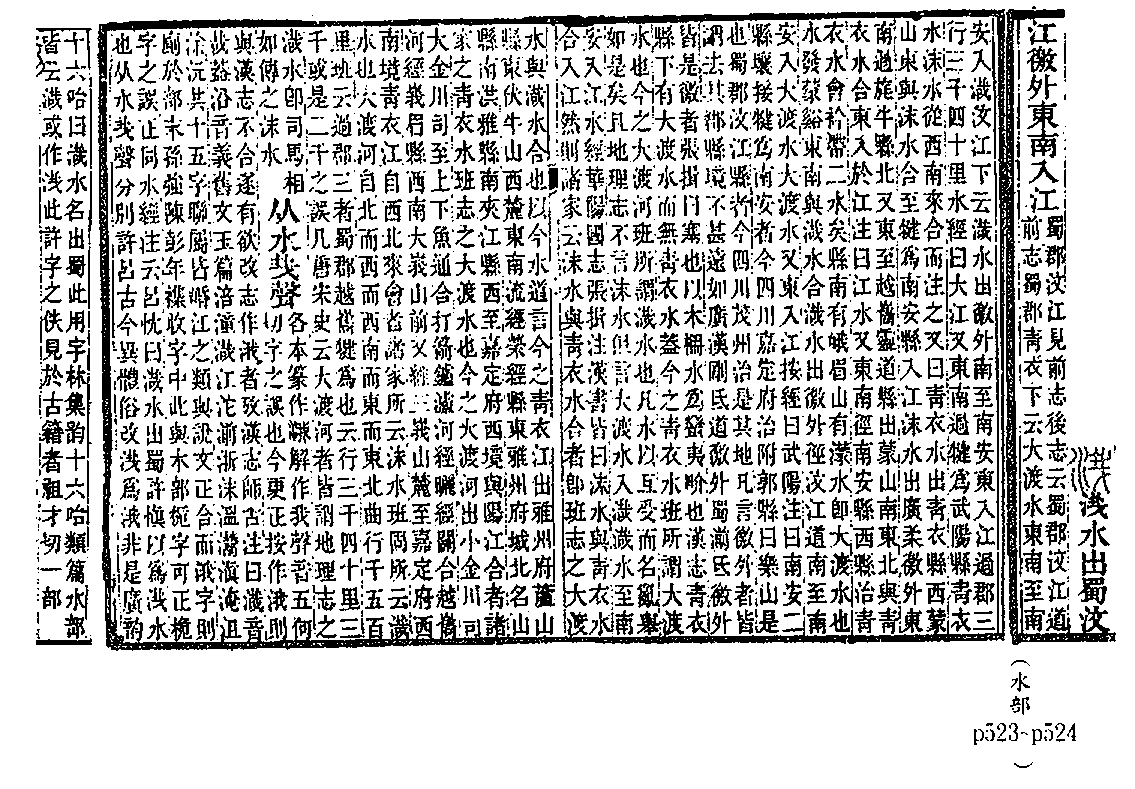 渽水出蜀汶
江徼外東南入江
蜀郡汶江見前志後志云蜀郡汶江道
前志蜀郡青衣下云大渡水東南至南
安入渽汶江下云渽水出徼外南至南安東入江過郡三
行三千四十里水經曰大江又東南過犍爲武陽縣青衣
水沬水從西南來合而注之又曰青衣水出青衣縣西蒙
山東與沬水合至犍爲南安縣入江沬水出廣柔徼外東
南過旄牛縣北又東至越巂靈道縣出蒙山南東北與青
衣水合東入於江注曰江水又東南徑南安縣西縣治青
衣水會衿帶二水矣縣南有峨眉山有濛水卽大渡水也
水發蒙谿東南與渽水合渽水出徼外徑汶江道南至南
安入大渡水大渡水又東入江按經曰武陽注曰南安二
縣壤接犍爲南安者今四川嘉定府治附郭縣曰樂山是
也蜀郡汶江縣者今四川茂州治是其地凡言徼外者皆
謂去其郡縣境不甚遠如廣漢剛氐道徼外蜀湔氐徼外
皆是徼者張揖曰塞也以木柵水爲蠻夷畍也青衣班志
縣下有大渡水而無青衣水葢今之青衣水班所謂大渡
水也今之大渡河班所謂渽水也凡水以互受而名亂舉
如是矣且地理志不言沬水但言大渡水入渽渽水至南
安入江水經華陽國志張揖注漢書皆曰沬水與青衣水
合入江然則諸家云沬水與青衣水合者卽班志之大渡
水與渽水合也以今水道言今之青衣江出雅州府蘆山
縣東伏牛山西麓東南流經榮經縣東雅州府城北名山
縣南洪雅縣南夾江縣西至嘉定府西境與陽江合者諸
家之青衣水班志之大渡水也今之大渡河出小金川司
大金川司至上下魚通合打箭鑪瀘河經曬經關合越巂
河經峩眉縣西南大峩山前又經三峩山麓至嘉定府西
南境青衣江自西北來會者諸家所云沬水班固所云渽
水也大渡河自北而西而西南而東而東北曲行千五百
里班云過郡三者蜀郡越巂犍爲也云行三千四十里三
千或是二千之誤凡唐宋史云大渡河者皆謂地理志之
渽水卽司馬相
如傳之沬水
从水𢦏聲
各本篆作涐解作我聲音五何
切字之誤也今更正按作涐則
與漢志不合遂有欲改志作涐者攷漢志師古注曰渽音
哉葢沿晉義舊文玉篇涪潼渽江沱湔浙沬溫灊滇淹沮
涂沅共十五字聯屬皆崏江之類與說文正合而涐字則
廁於部末孫強陳彭年襍收字中此與木部㭒字可正桅
字之誤正同水經注云呂忱曰渽水出蜀許愼以爲渽水
也从水𢦏聲分別許呂古今異體俗改渽爲涐非是廣韵
十六咍曰渽水名出蜀此用字林集韵十六咍類篇水部
皆云渽或作渽此許字之佚見於古籍者祖才切一部
(水部
p523~p524
)